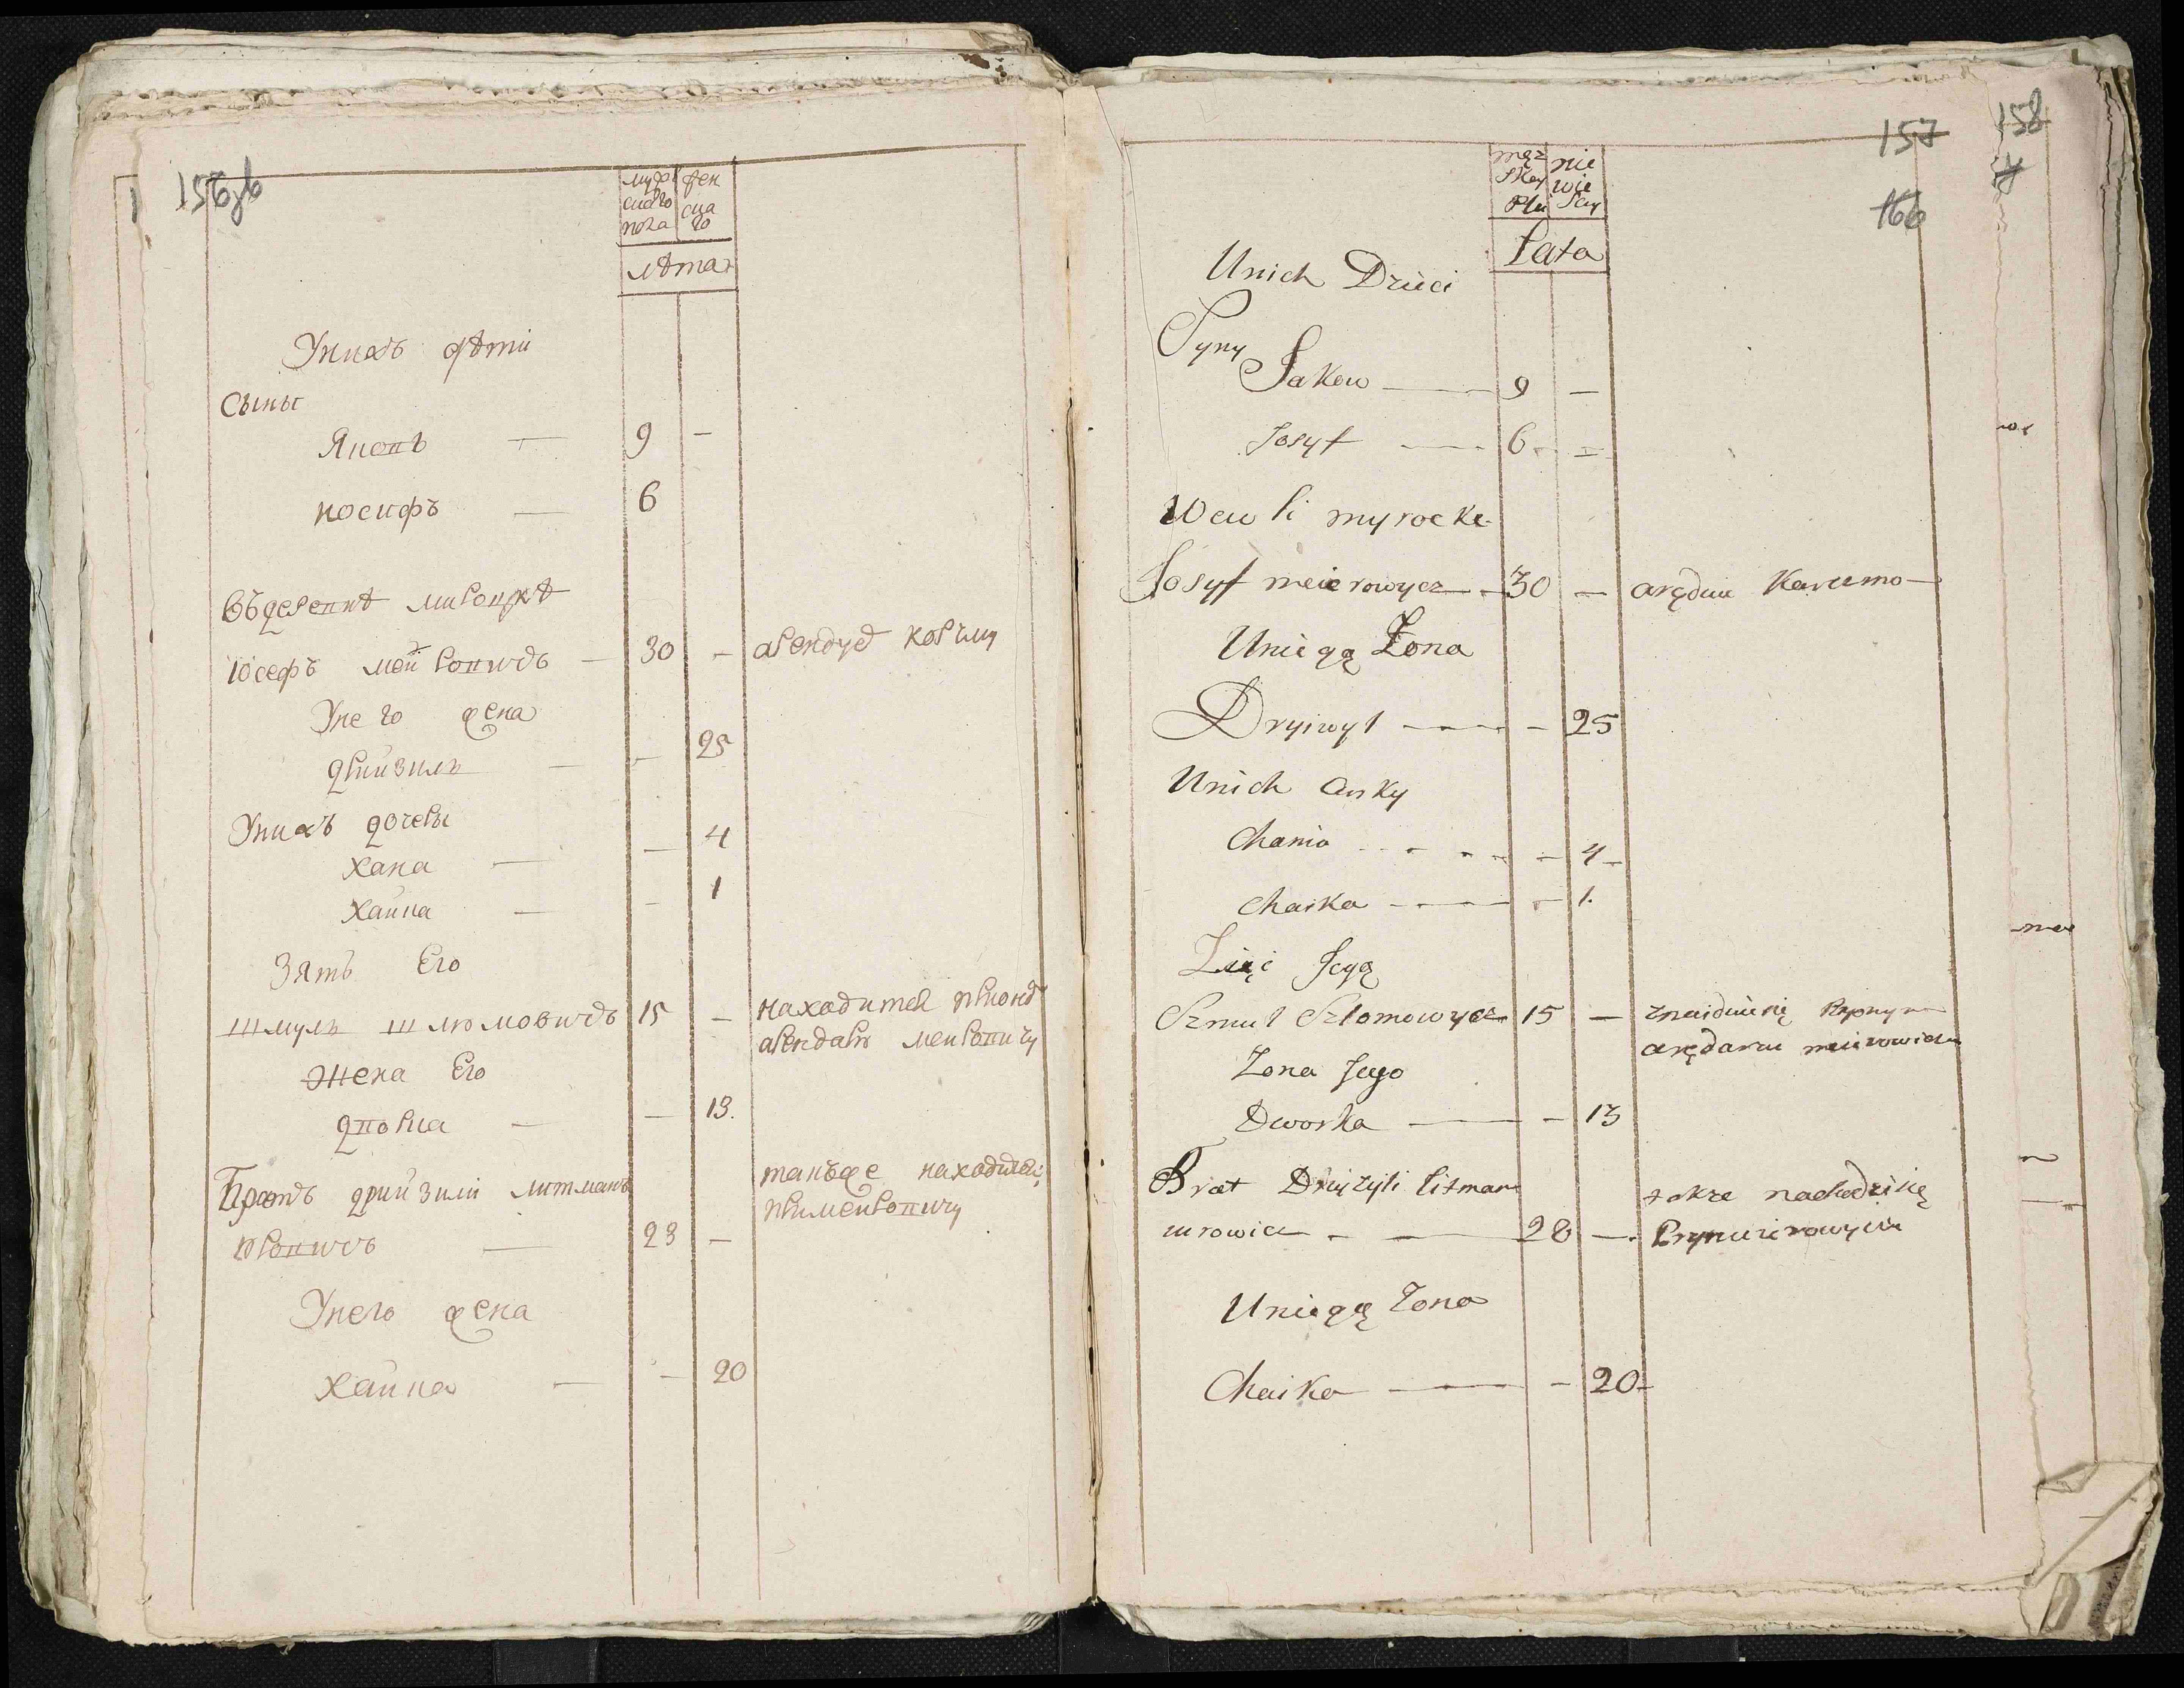 156зв
мужескаго пола
женскаго
лѣта
Унихъ дѣти
Сыны
Яковъ — 9 —
иосифъ — 6
Въдеревнѣ
юсефъ меировичъ — 30 — арендуе корчму
Унего жена
дрийзиль — — 25
Унихъ дочеры
хана — — 4
хайка — — 1
Зять Его
шмуль шлюмовичъ 15 — находится
арендарѣ меировичу
жена Его
дворка — — 13.
Братъ дрийзили литманъ такъже находится
23 — примеировичу
Унего жена
хайка — — 20
157
158
166
męz skey płci
nie wie scy
Lata
Unich Dzieci
Syny
Jakow — 9 —
Josyf — 6 —
Wew si myrocke
Josyf meierowycz — 30 — aręduie Karcmo
Uniegą Zona
Dryizyl — — 25
Unich Curky
Chania — 4 —
Chaika — — 1.
Zięć Jegą
Szmul Szlomowycz 15 — znaiduiesię
arędaru meierowiczu
Zona Jego
Dworka — — 13
Brat Dryizyli Litman takze nachodzisię
urowicz — 28 —
Uniegą Zona
Chaika — — 20 —